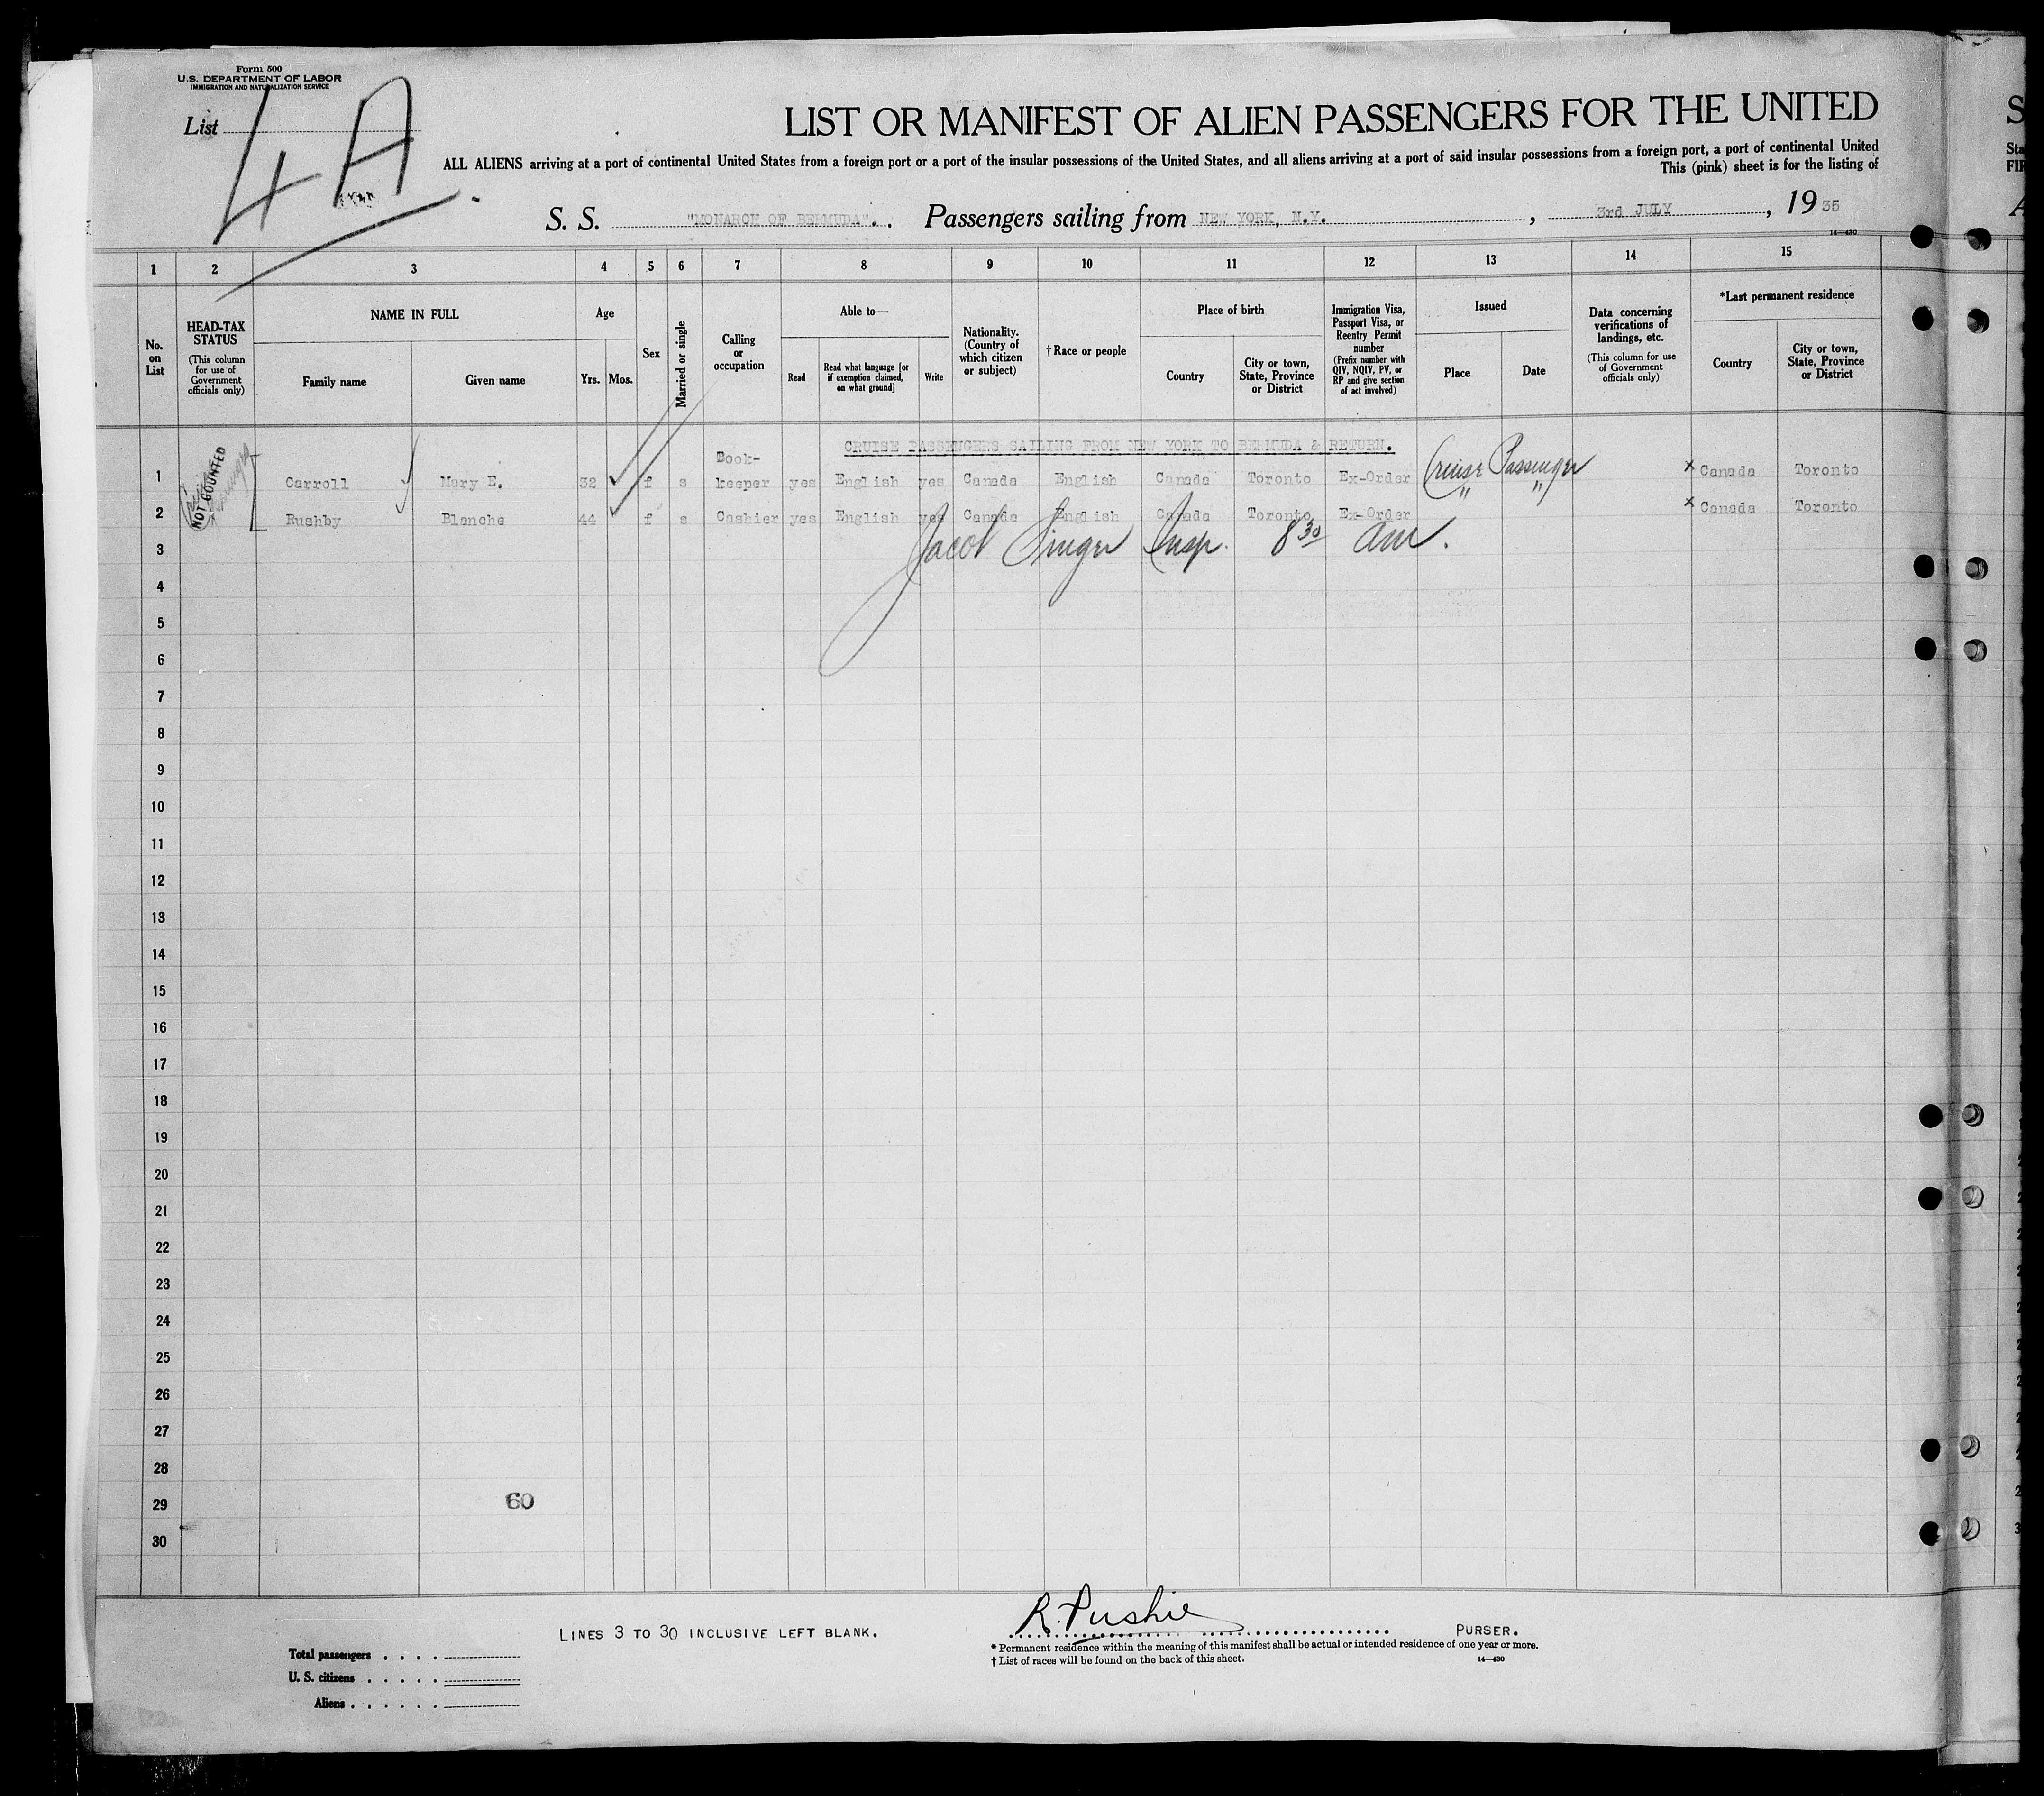 Form 500
U.S. DEPARTMENT OF LABOR
IMMIGRATION AND NATURALIZATION SERVICE
List
4A
LIST OR MANIFEST OF ALIEN PASSENGERS FOR THE UNITED
ALL ALIENS arriving at a port of continental United States from a foreign port or a port of the insular possessions of the United States, and all aliens arriving at a port of said insular possessions from a foreign port, a port of continental United
This (pink) sheet is for the listing of
S. S. "MONARCH OF BERMUDA". Passengers sailing from NEW YORK, N.Y. , 3rd JULY , 19 35
14—430
1 2 3 4 5 6 7 8 9 10 11 12 13 14 15
No. on List
HEAD-TAX STATUS
(This column for use of Government officials only)
NAME IN FULL
Family name
Given name
Age
Yrs. Mos.
Sex
Married or single
Calling or occupation
Able to—
Read
Read what language [or if exemption claimed, on what ground]
Write
Nationality. (Country of which citizen or subject)
†Race or people
Place of birth
Country
City or town, State, Province or District
Immigration Visa, Passport Visa, or Reentry Permit number
(Prefix number with QIV, NQIV, PV, or RP and give section of act involved)
Issued
Place
Date
Data concerning verifications of landings, etc.
(This column for use of Government officials only)
*Last permanent residence
Country
City or town, State, Province or District
CRUISE PASSENGERS SAILING FROM NEW YORK TO BERMUDA & RETURN.
NOT COUNTED
1 Carroll Mary E. 32 f s Book-keeper yes English yes Canada English Canada Toronto Ex-Order Cruise Passenger x Canada Toronto
2 Rushby Blanche 44 f s Cashier yes English yes Canada English Canada Toronto Ex-Order " " x Canada Toronto
3 Jacob Singer Insp. 8 30 am.
4
5
6
7
8
9
10
11
12
13
14
15
16
17
18
19
20
21
22
23
24
25
26
27
28
29 60
30
LINES 3 TO 30 INCLUSIVE LEFT BLANK.
R. Pushie
PURSER.
Total passengers
U. S. citizens
Aliens
* Permanent residence within the meaning of this manifest shall be actual or intended residence of one year or more.
† List of races will be found on the back of this sheet.
14—430